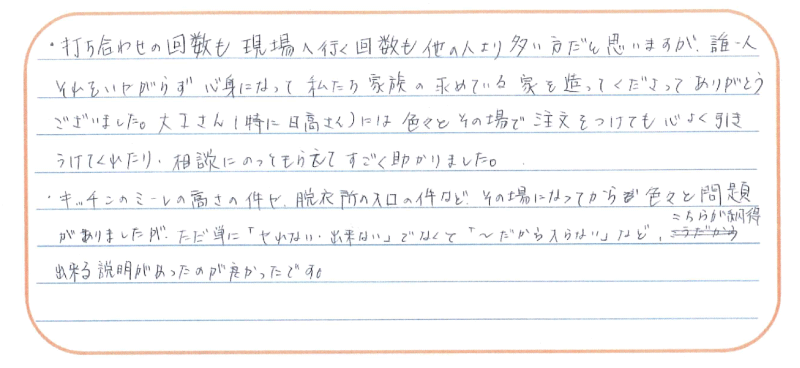 ・打ち合わせの回数も現場へ行く回数も他の人より多い方だと思いますが、誰一人
それをいやがらず心身になって私たち家族の求めている家を造ってくださってありがとう
ございました。大工さん(特に日高さん)には色々とその場で注文をつけても心よく引き
うけてくれたり、相談にのってもらえてすごく助かりました。
・キッチンのミーレの高さの件や、脱衣所の入口の件など、その場になってから色々と問題
がありましたが、ただ単に「やれない・出来ない」でなくて「〜だから入らない」など、こちらが納得
出来る説明があったのが良かったです。